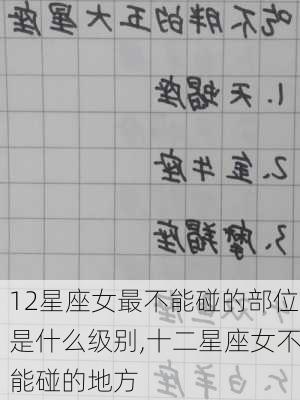 吃不胖的五大星座
1.天蝎座
2.金牛座
3.摩羯座
12星座女最不能碰的部位
是什么级别,十二星座女不
能碰的地方
5.白羊座